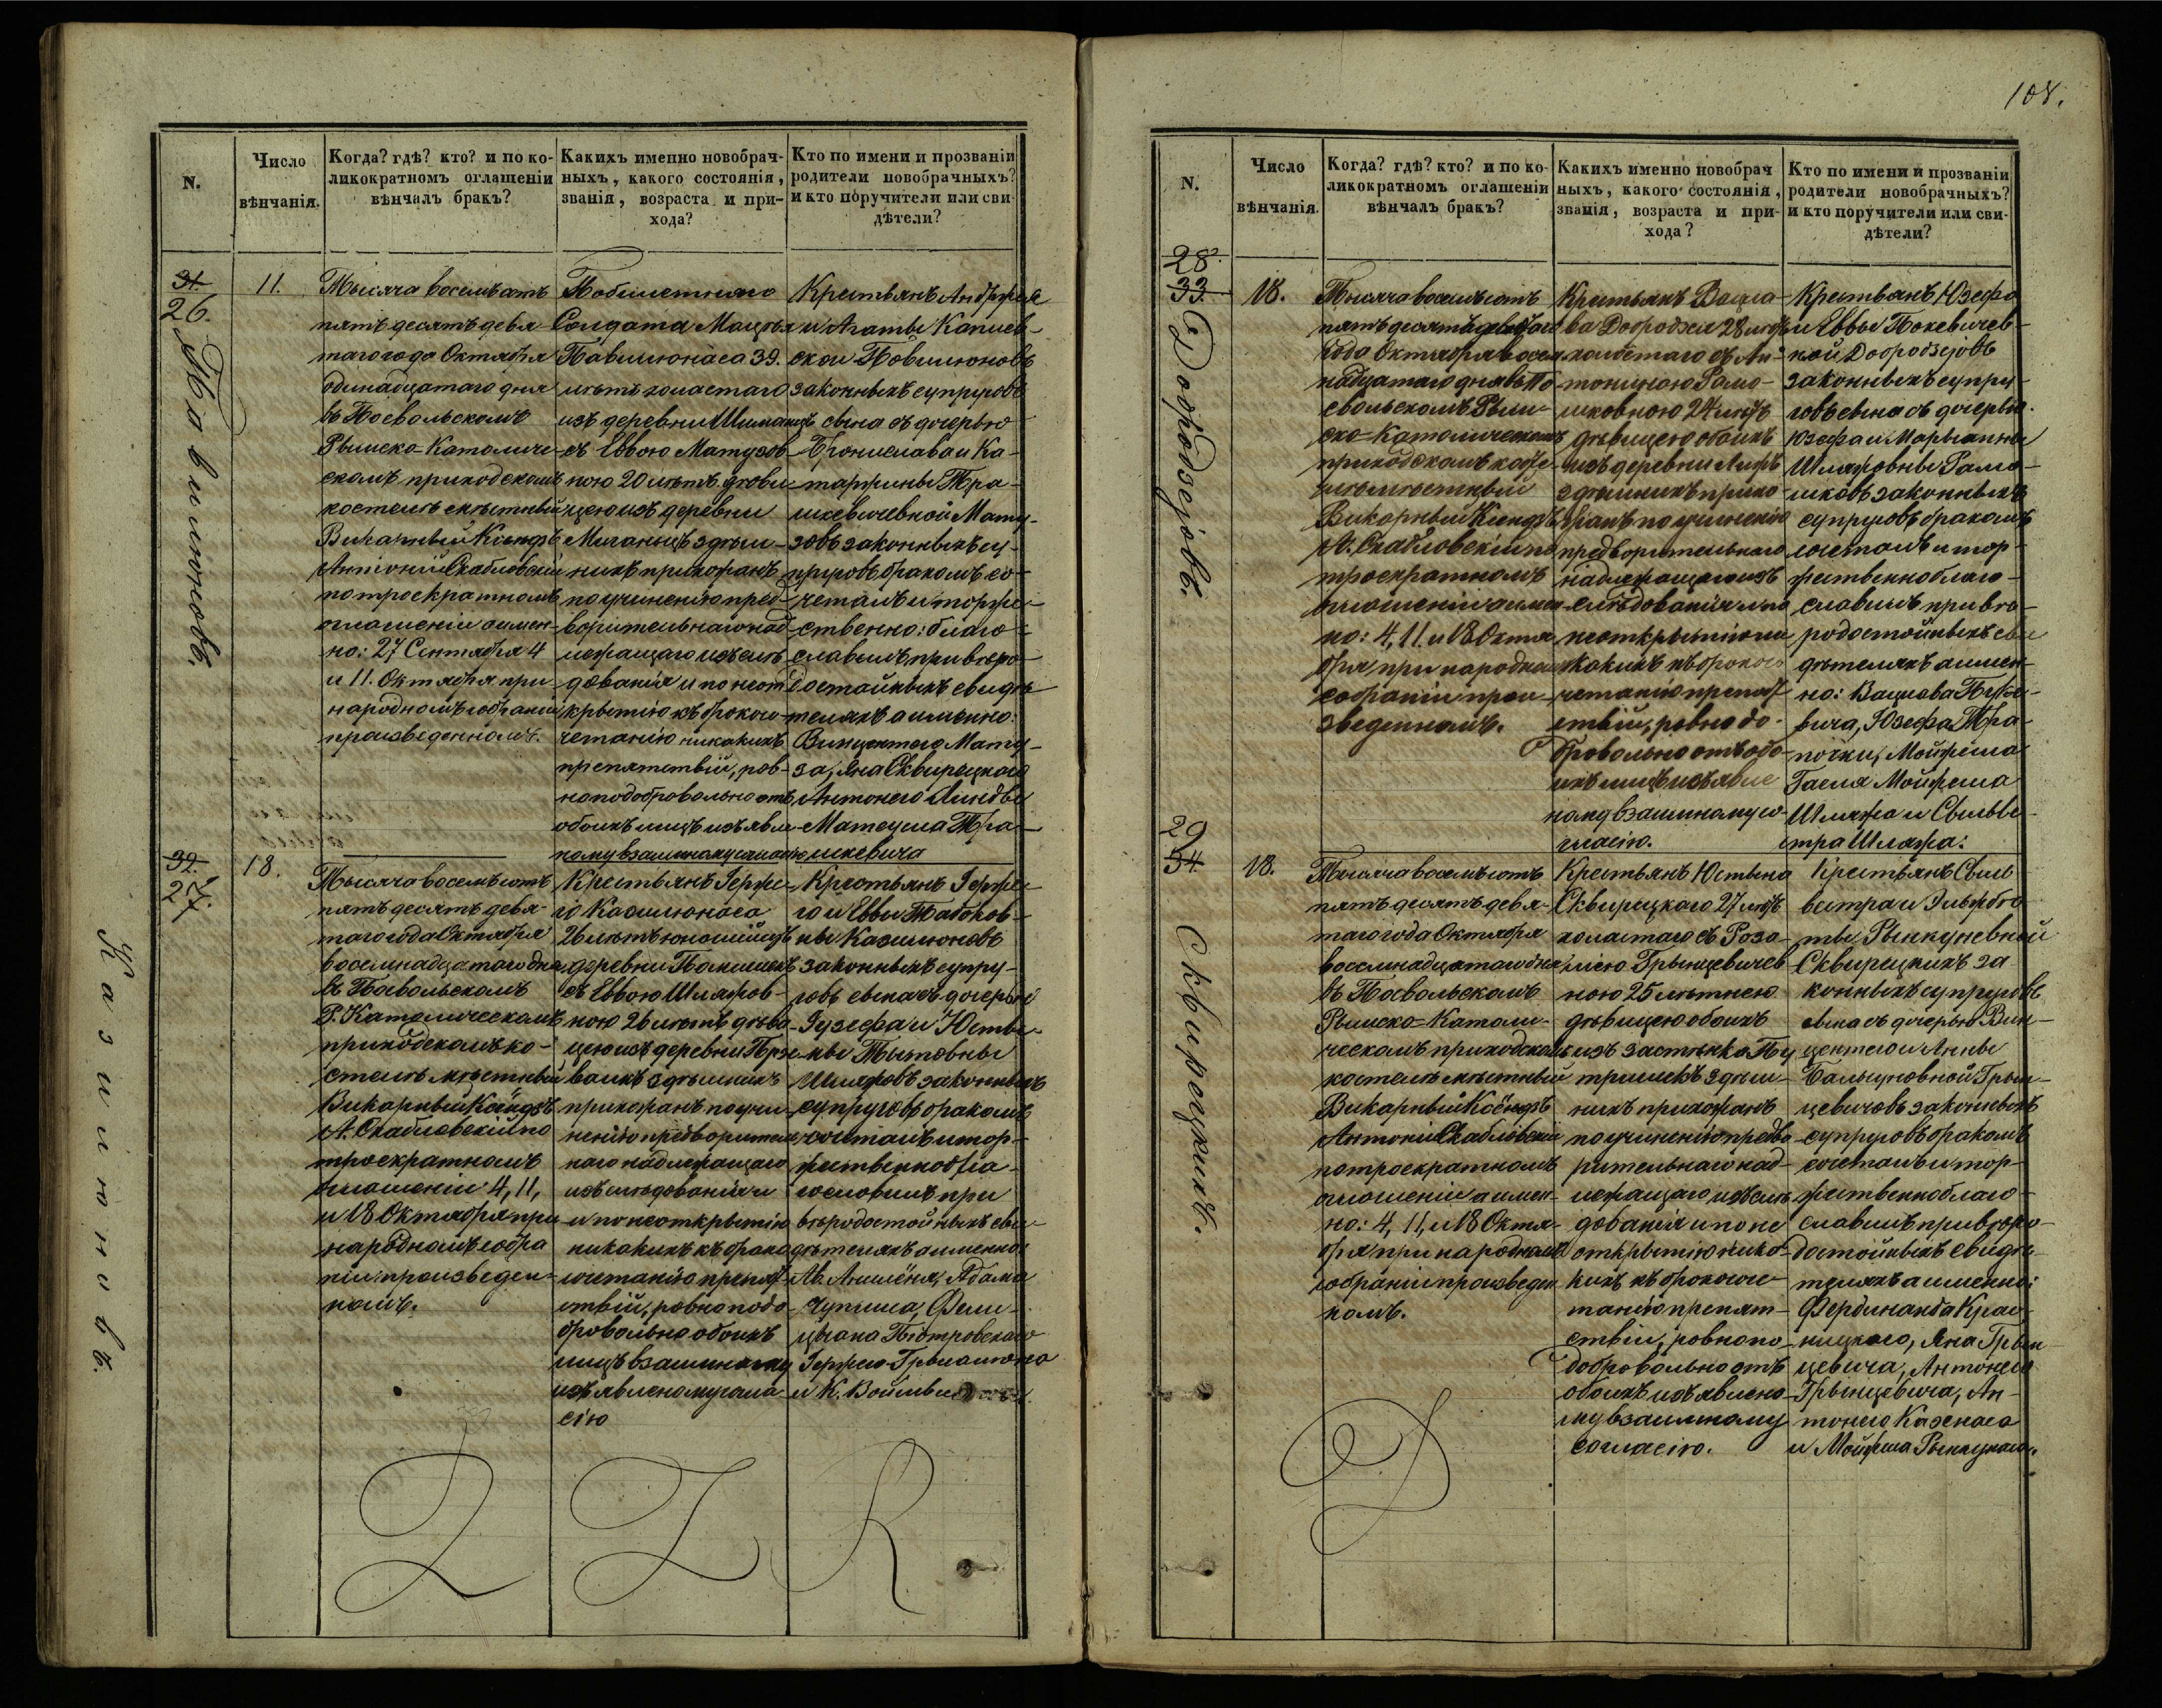 N.
Число
вѣнчанія.
Когда? гдѣ? кто? и по ко-
ликократномъ оглашеніи
вѣнчалъ бракъ?
Какихъ именно новобрач-
ныхъ, какого состоянія,
званія, возраста и при-
хода?
Кто по имени и прозванію
родители новобрачныхъ?
и кто поручители или сви-
дѣтели?
31.
26.
11.
Тысяча восемьсотъ
пятьдесятъ девя-
таго года Октября
одинадцатаго дня
въ Посвольскомъ
Рымско-Католиче-
скомъ приходскомъ
костелѣ мѣстный
Викарный Ксендзъ
Антоній Скабловскій
по троекратномъ
оглашеніи а имен-
но: 27 Сентября 4
и 11. Октября при
народномъ собраніи
произведенномъ.
солдата
39.
лѣтъ холостаго
изъ деревни
съ Еввою Матузов-
ною 20 лѣтъ дѣви-
цею изъ деревни
здѣш-
нихъ прихожанъ
по учиненію пред-
варительнаго над-
лежащаго изслѣ-
дованія и по неот
крытію къ брако со
четанію никакихъ
препятствій, рав-
но по добровольно отъ
обоихъ лицъ изъявле-
ному взаимному согласію
Крестьянъ Андржея
и Агаты
законныхъ супруговъ
сына съ дочерью
Бронислава и Ка-
таржины Тра-
шкевичевной Мату-
зовъ законныхъ су-
пруговъ бракомъ со-
четалъ и торже-
ственно: благо-
славилъ при вѣро-
достойныхъ свидѣ-
теляхъ а именно:
Винцентаго Мату-
за, Яна Сквирецкаго
Антонего
Матеуша Тра-
шкевича
32.
27.
18.
Тысяча восемьсотъ
пятьдесятъ девя-
таго года Октября
восемнадцатаго дня
въ Посвольскомъ
Р. Католическомъ
приходскомъ ко-
стелѣ мѣстный
Викарный Ксёндзъ
А. Скабловскій по
троекратномъ
оглашеніи 4, 11,
и 18 Октября при
народномъ собра
ніи произведен-
номъ.
Крестьянъ Герже-
го Казилюнаса
26 лѣтъ юношій изъ
деревни
съ Еввою Шляжов-
ною 26 лѣтъ дѣви-
цею изъ деревни
здѣшнихъ
прихожанъ по учи-
ненію предварител
наго надлежащаго
изслѣдованія и
и по неоткрытію
никакихъ къ брако
сочетанію препят
ствій, равно по до
бровольно обоихъ
лицъ взаимному
изъявленому согла-
сію
Крестьянъ Герже-
го и Еввы
ны Казилюновъ
законныхъ супру-
говъ сына съ дочерью
Іузефа и Юсты-
ны
Шляжовъ законныхъ
супруговъ бракомъ
сочеталъ и тор-
жественно бла-
гословилъ при
вѣродостойныхъ сви-
дѣтеляхъ а именно:
Адама
Фели-
цыана Піотровскаго
Гержего
и К.
Казилюновъ.
108.
N.
Число
вѣнчанія.
Когда? гдѣ? кто? и по ко-
ликократномъ оглашеніи
вѣнчалъ бракъ?
Какихъ именно новобрач
ныхъ, какого состоянія,
званія, возраста и при-
хода?
Кто по имени и прозванію
родители новобрачныхъ?
и кто поручители или сви-
дѣтели?
28.
33.
Добродзеіовъ.
18.
Тысяча восемьсотъ
пятьдесятъ девятаго
года Октября восем
надцатаго дня въ По
свольскомъ Рым-
ско-Католическомъ
приходскомъ косте-
лѣ мѣстный
Викарный Ксендзъ
А. Скабловскій по
троекратномъ
оглашеніи а имен
но: 4, 11. и 18 Октя
бря при народномъ
собраніи прои-
зведенномъ.
Крестьянъ Вацла-
ва Добродзея 28 лѣтъ
холостаго съ Ан-
тониною
24 лѣтъ
дѣвицею обоихъ
изъ деревни
здѣшнихъ прихо
жанъ по учиненію
предварительнаго
надлежащаго из
слѣдованія и по
неоткрытію ни
какихъ къ брако со
четанію препят
ствій, равно до-
бровольно отъ обо-
ихъ лицъ изъявле
ному взаимному со-
гласію.
Крестьянъ Юзефа
и Еввы
ной Добродзеіовъ
законныхъ супру-
говъ сына съ дочерью.
Юзефа и Марыанны
Шляжовны
законныхъ
супруговъ бракомъ
сочеталъ и тор-
жественно благо-
славилъ при вѣ-
родостойныхъ сви
дѣтеляхъ а имен-
но: Вацлава
Юзефа
Мойжеша
Мойжеша
Шляжа и Сыльве-
стра Шляжа:
29
34.
Сквирецкихъ.
18.
Тысяча восемьсотъ
пятьдесятъ девя-
таго года Октября
восемнадцатаго дня
въ Посвольскомъ
Рымско-Католи-
ческомъ приходскомъ
костелѣ мѣстный
Викарный Ксёндзъ
Антоній Скабловскій
по троекратномъ
оглашеніи а имен-
но: 4, 11, и 18 Октя-
бря при народномъ
собраніи произведен
номъ.
Крестьянъ Юстына
Сквирецкаго 27 лѣтъ
холостаго съ Роза-
ліею Грынцевичев-
ною 25 лѣтнею
дѣвицею обоихъ
изъ застѣнка
здѣш-
нихъ прихожанъ
по учиненію предва-
рительнаго над-
лежащаго изслѣ
дованія и по не
открытію ника-
кихъ къ брако соче-
танію препят-
ствій, равно по
добровольно отъ
обоихъ изъявлено-
му взаимному
согласію.
Крестьянъ Сыль
вестра и Эльжбѣ-
ты Рынкуневной
Сквирецкихъ за-
конныхъ супруговъ
сына съ дочерью Вин-
центего и Анны
Грын-
цевичовъ законныхъ
супруговъ бракомъ
сочеталъ и тор-
жественно благо-
славилъ при вѣро-
достойныхъ свидѣ-
теляхъ а именно:
Фердинанда
Яна Грын
цевича, Антонего
Грынцевича, Ан-
тонего
и Мойжеша